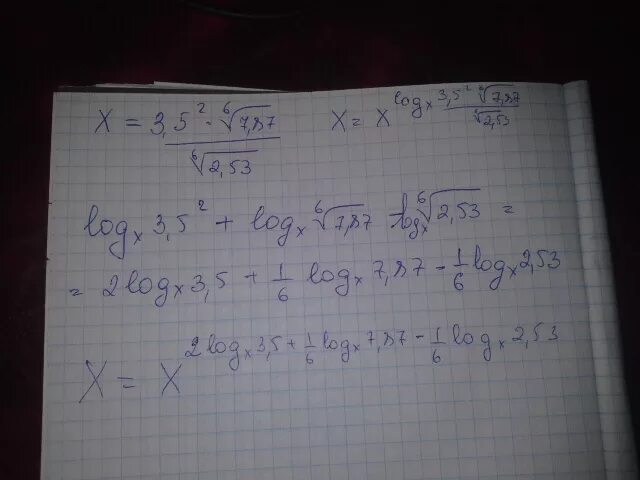 X = 3,5² · ⁶√7,87 / ⁶√2,53    X = X^(logₓ 3,5² · ⁶√7,87 / ⁶√2,53)
logₓ 3,5² + logₓ ⁶√7,87 - logₓ ⁶√2,53 =
= 2 logₓ 3,5 + 1/6 logₓ 7,87 - 1/6 logₓ 2,53
X = X^(2 logₓ 3,5 + 1/6 logₓ 7,87 - 1/6 logₓ 2,53)